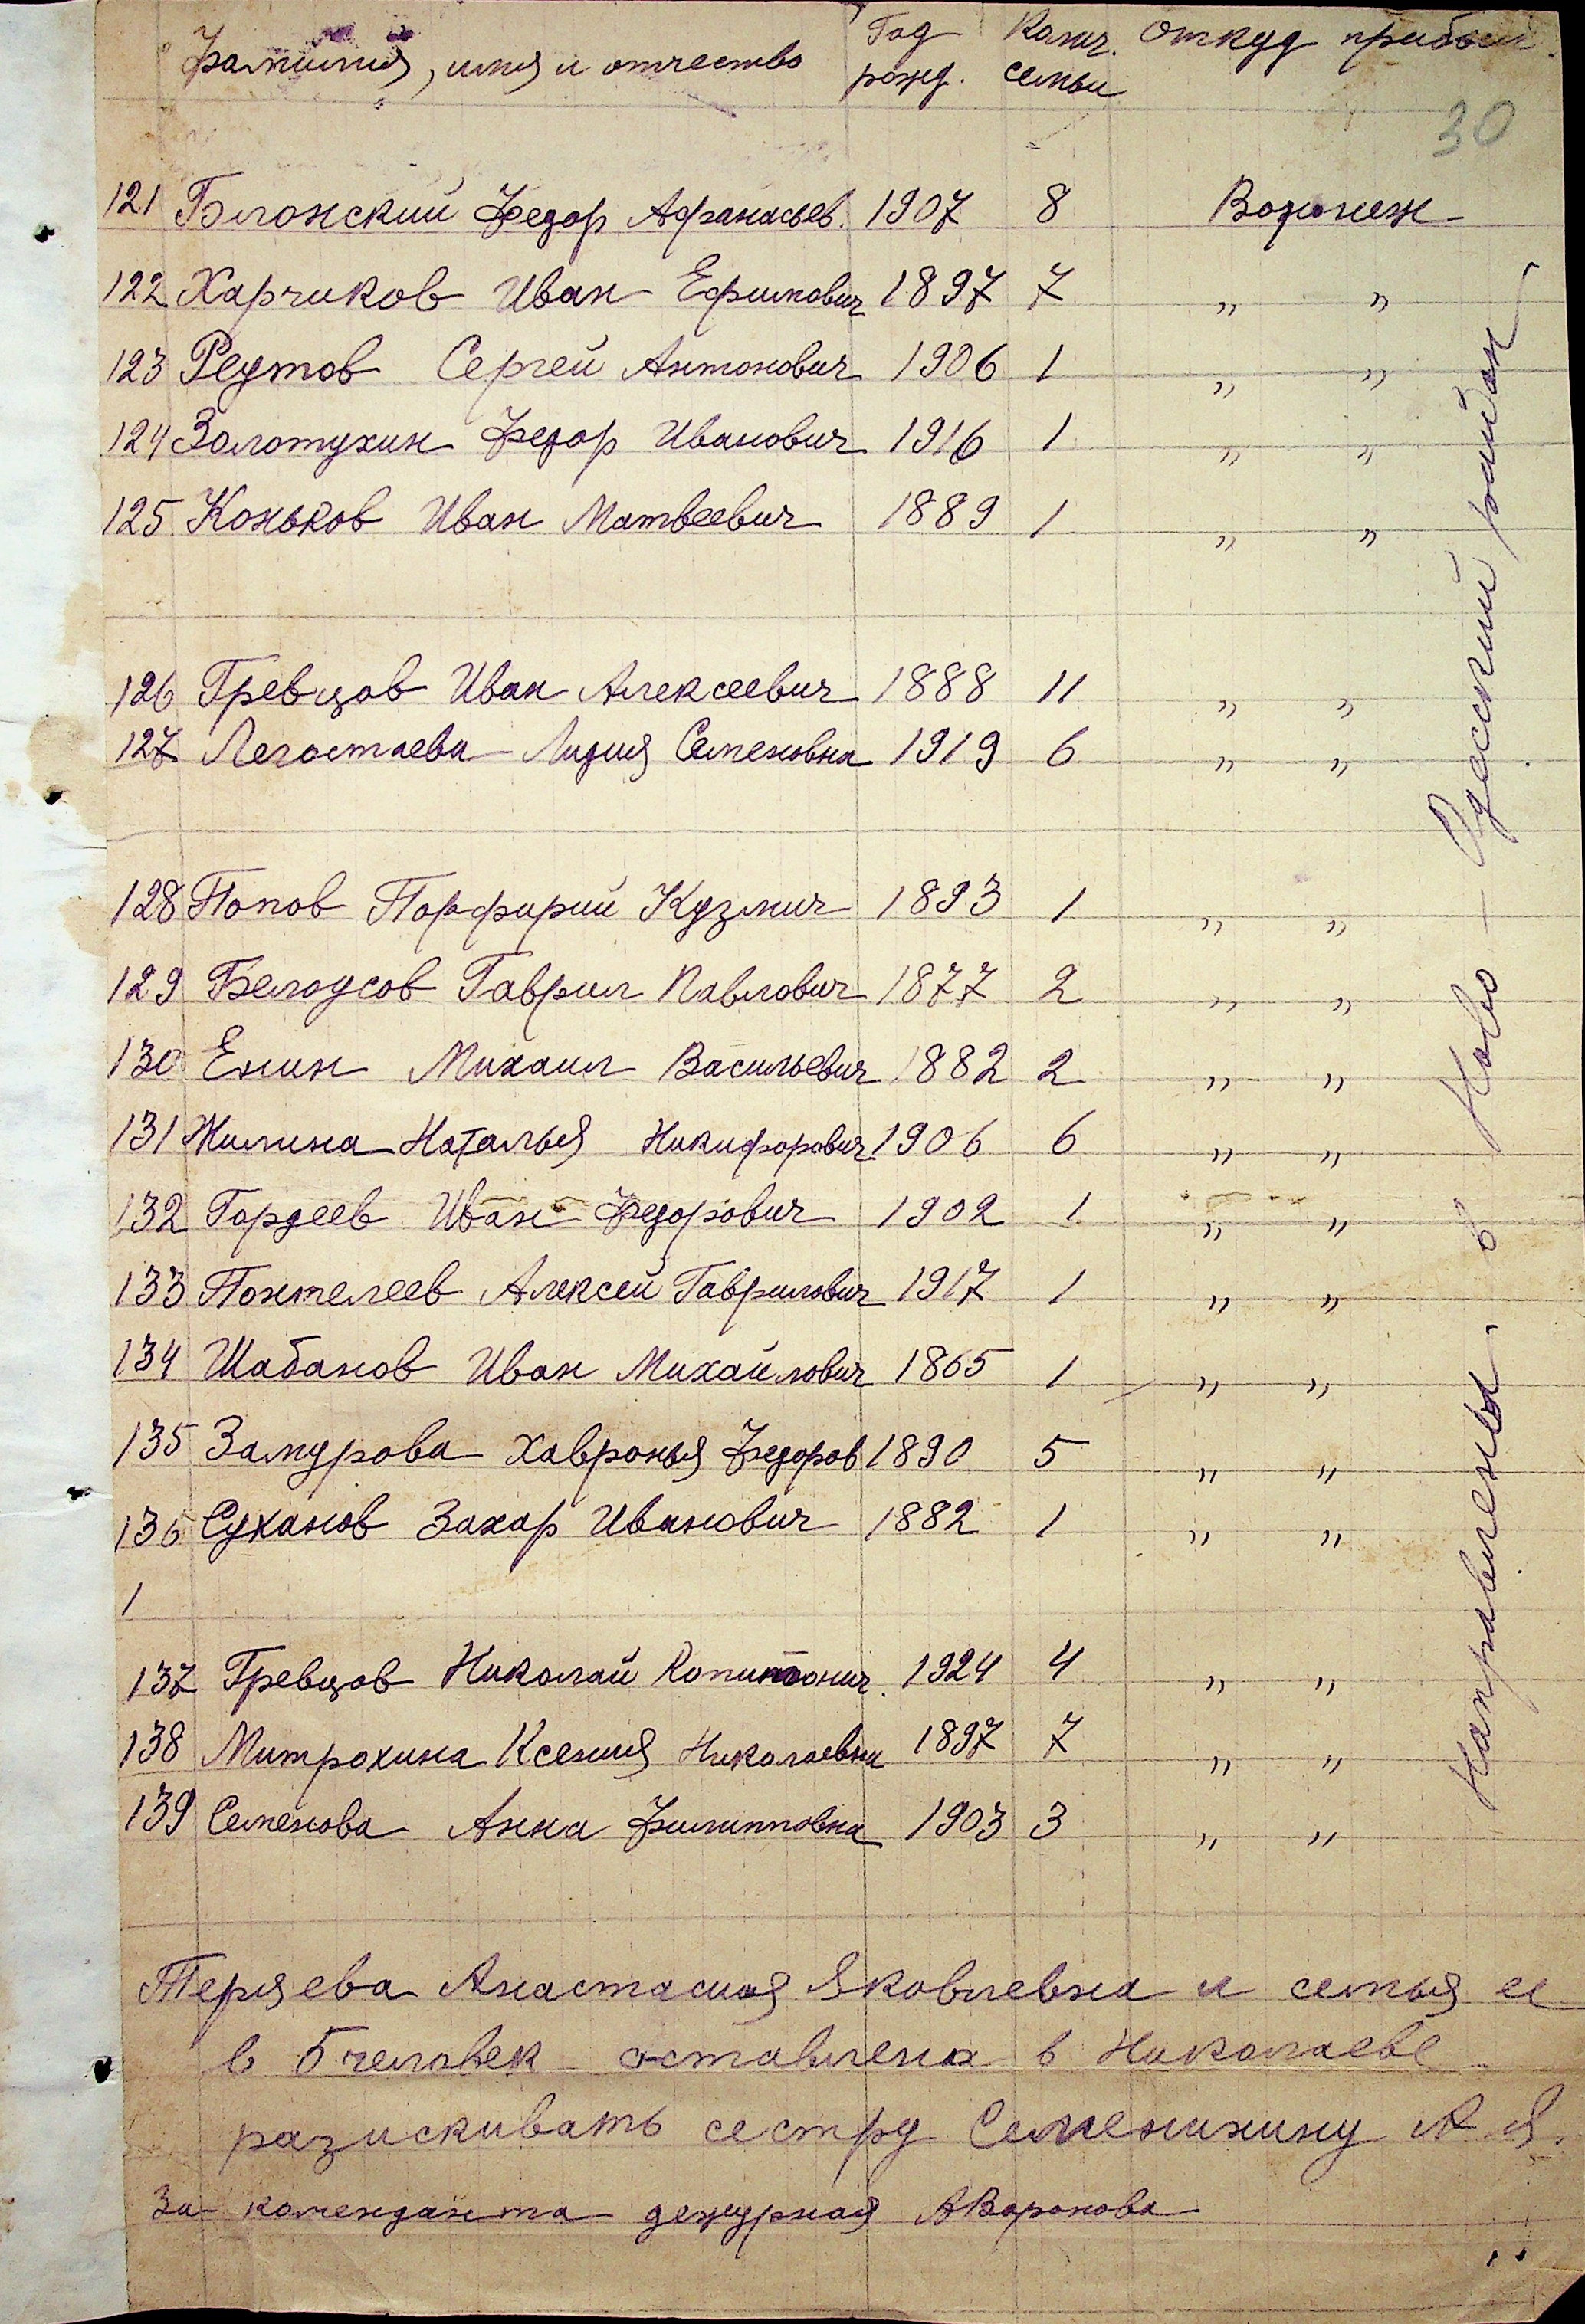 Фамилия, имя и отчество Год рожд. Колич. семьи Откуд прибыл
30
121 Блонский Федор Афанасьев. 1907 8 Воронеж
122 Харчиков Иван Ефимович 1897 7 " "
123 Реутов Сергей Антонович 1906 1 " "
124 Золотухин Федор Иванович 1916 1 " "
125 Коньков Иван Матвеевич 1889 1 " "
126 Гревцов Иван Алексеевич 1888 11 " "
127 Легостаева Лидия Семеновна 1919 6 " "
128 Попов Порфирий Кузмич 1893 1 " "
129 Белоусов Гаврил Павлович 1877 2 " "
130 Енин Михаил Васильевич 1882 2 " "
131 Жилина Наталья Никифорович 1906 6 " "
132 Гордеев Иван Федорович 1902 1 " "
133 Понтелеев Алексей Гаврилович 1917 1 " "
134 Шабанов Иван Михайлович 1865 1 " "
135 Замурова Хавронья Федоров 1890 5 " "
136 Суханов Захар Иванович 1882 1 " "
1
137 Гревцов Николай 1924 4 " "
138 Митрохина Ксения Николаевна 1897 7 " "
139 Семенова Анна Филипповна 1903 3 " "
Направлены в Ново-Одесский район
Теряева Анастасия Яковлевна и семья ее
в 5 человек оставлена в Николаеве
разискивать сестру Семенихину А. Я.
За комендаета дежурная АВоронова